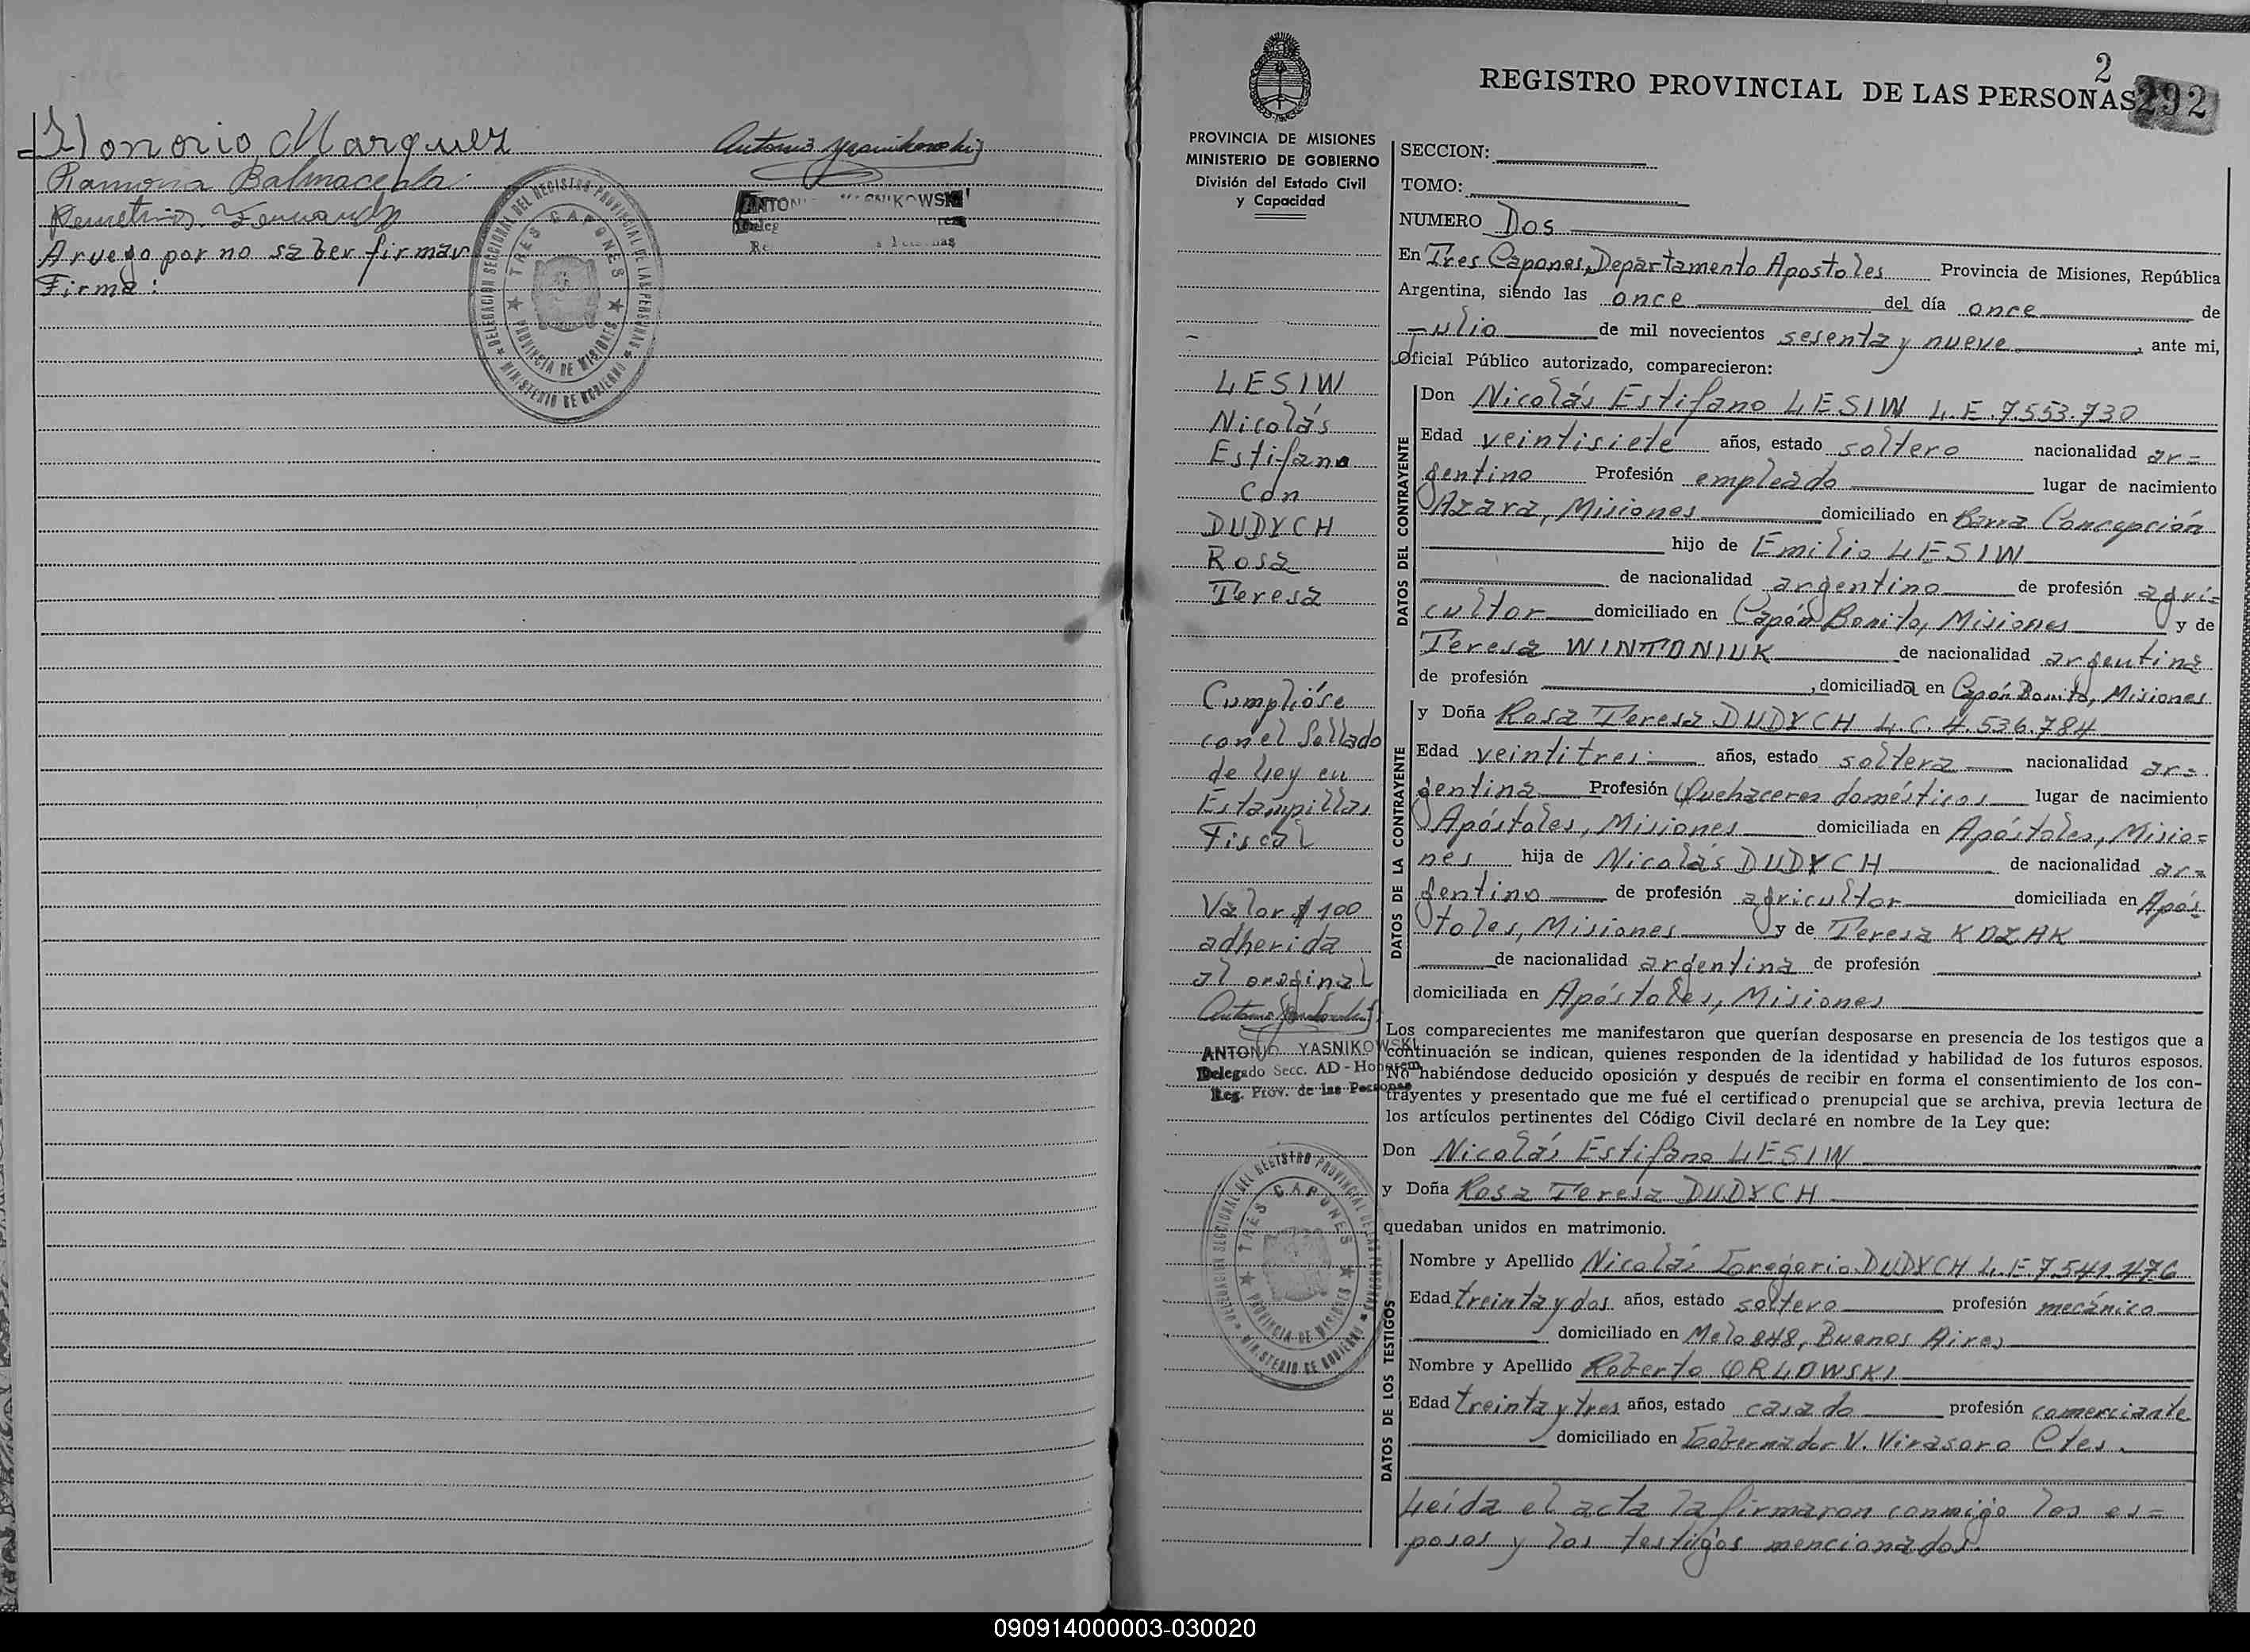 Honorio Marquez
Antonio Yasnikowski
Ramona Balmaceda
Demetrio Fernandez
Aruego por no saber firmar
Firma:
DELEGACION SECCIONAL DEL REGISTRO PROVINCIAL DE LAS PERSONAS
TRES CAPONES
PROVINCIA DE MISIONES
MINISTERIO DE GOBIERNO
2
REGISTRO PROVINCIAL DE LAS PERSONAS
292
PROVINCIA DE MISIONES
MINISTERIO DE GOBIERNO
División del Estado Civil
y Capacidad
LESIW
Nicolás
Estifano
Con
DUDYCH
Rosa
Teresa
Cumplióse
con el Sellado
de Ley en
Estampillas
Fiscal
Valor $ 100
adherida
al original
Antonio Yasnikowski
ANTONIO YASNIKOWSKI
Delegado Secc. AD-Honorem
Reg. Prov. de las Personas
DELEGACION SECCIONAL DEL REGISTRO PROVINCIAL DE LAS PERSONAS
TRES CAPONES
PROVINCIA DE MISIONES
MINISTERIO DE GOBIERNO
SECCION:
TOMO:
NUMERO Dos
En Tres Capones, Departamento Apostoles Provincia de Misiones, República
Argentina, siendo las once del día once de
Julio de mil novecientos sesenta y nueve, ante mi,
Oficial Público autorizado, comparecieron:
DATOS DEL CONTRAYENTE
Don Nicolás Estifano LESIW L.E. 7.553.730
Edad veintisiete años, estado soltero nacionalidad ar=
gentino Profesión empleado lugar de nacimiento
Azara, Misiones domiciliado en Barra Concepción
hijo de Emilio LESIW
de nacionalidad argentino de profesión agri=
cultor domiciliado en Capón Bonito, Misiones y de
Teresa WINTONIUK de nacionalidad argentina
de profesión , domiciliada en Capón Bonito, Misiones
DATOS DE LA CONTRAYENTE
y Doña Rosa Teresa DUDYCH L.C. 4.536.784
Edad veintitres años, estado soltera nacionalidad ar=
gentina Profesión Quehaceres domésticos lugar de nacimiento
Apóstoles, Misiones domiciliada en Apóstoles, Misio=
nes hija de Nicolás DUDYCH de nacionalidad ar=
gentino de profesión agricultor domiciliada en Após=
toles, Misiones y de Teresa KOZAK
de nacionalidad argentina de profesión ,
domiciliada en Apóstoles, Misiones
Los comparecientes me manifestaron que querían desposarse en presencia de los testigos que a
continuación se indican, quienes responden de la identidad y habilidad de los futuros esposos.
No habiéndose deducido oposición y después de recibir en forma el consentimiento de los con-
trayentes y presentado que me fué el certificado prenupcial que se archiva, previa lectura de
los artículos pertinentes del Código Civil declaré en nombre de la Ley que:
Don Nicolás Estifano LESIW
y Doña Rosa Teresa DUDYCH
quedaban unidos en matrimonio.
DATOS DE LOS TESTIGOS
Nombre y Apellido Nicolás Gregorio DUDYCH L.E. 7.541.476
Edad treinta y dos años, estado soltero profesión mecánico
domiciliado en Melo 848, Buenos Aires
Nombre y Apellido Roberto ORLOWSKI
Edad treinta y tres años, estado casado profesión comerciante
domiciliado en Gobernador V. Virasoro Ctes.
Leída el acta la firmaron conmigo los es=
posos y los testigos mencionados.
090914000003-030020